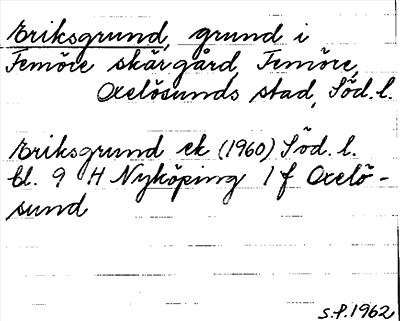 Eriksgrund, grund i
Femöre skärgård, Femöre,
Oxelösunds stad, Söd. l.
Eriksgrund ek (1960) Söd. l.
bl. 9 H Nyköping 1 f Oxelö-
sund
s.f. 1962